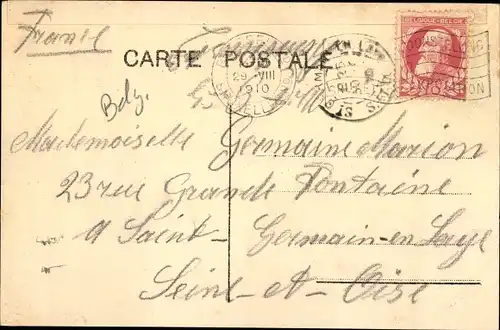 France
CARTE POSTALE
29 VIII
1910
BRUXELLES
BELGIQUE·BELGIË
Belg.
Mademoiselle Germaine Marion
23 rue Grande Fontaine
a Saint-Germain-en-Laye
Seine-et-Oise